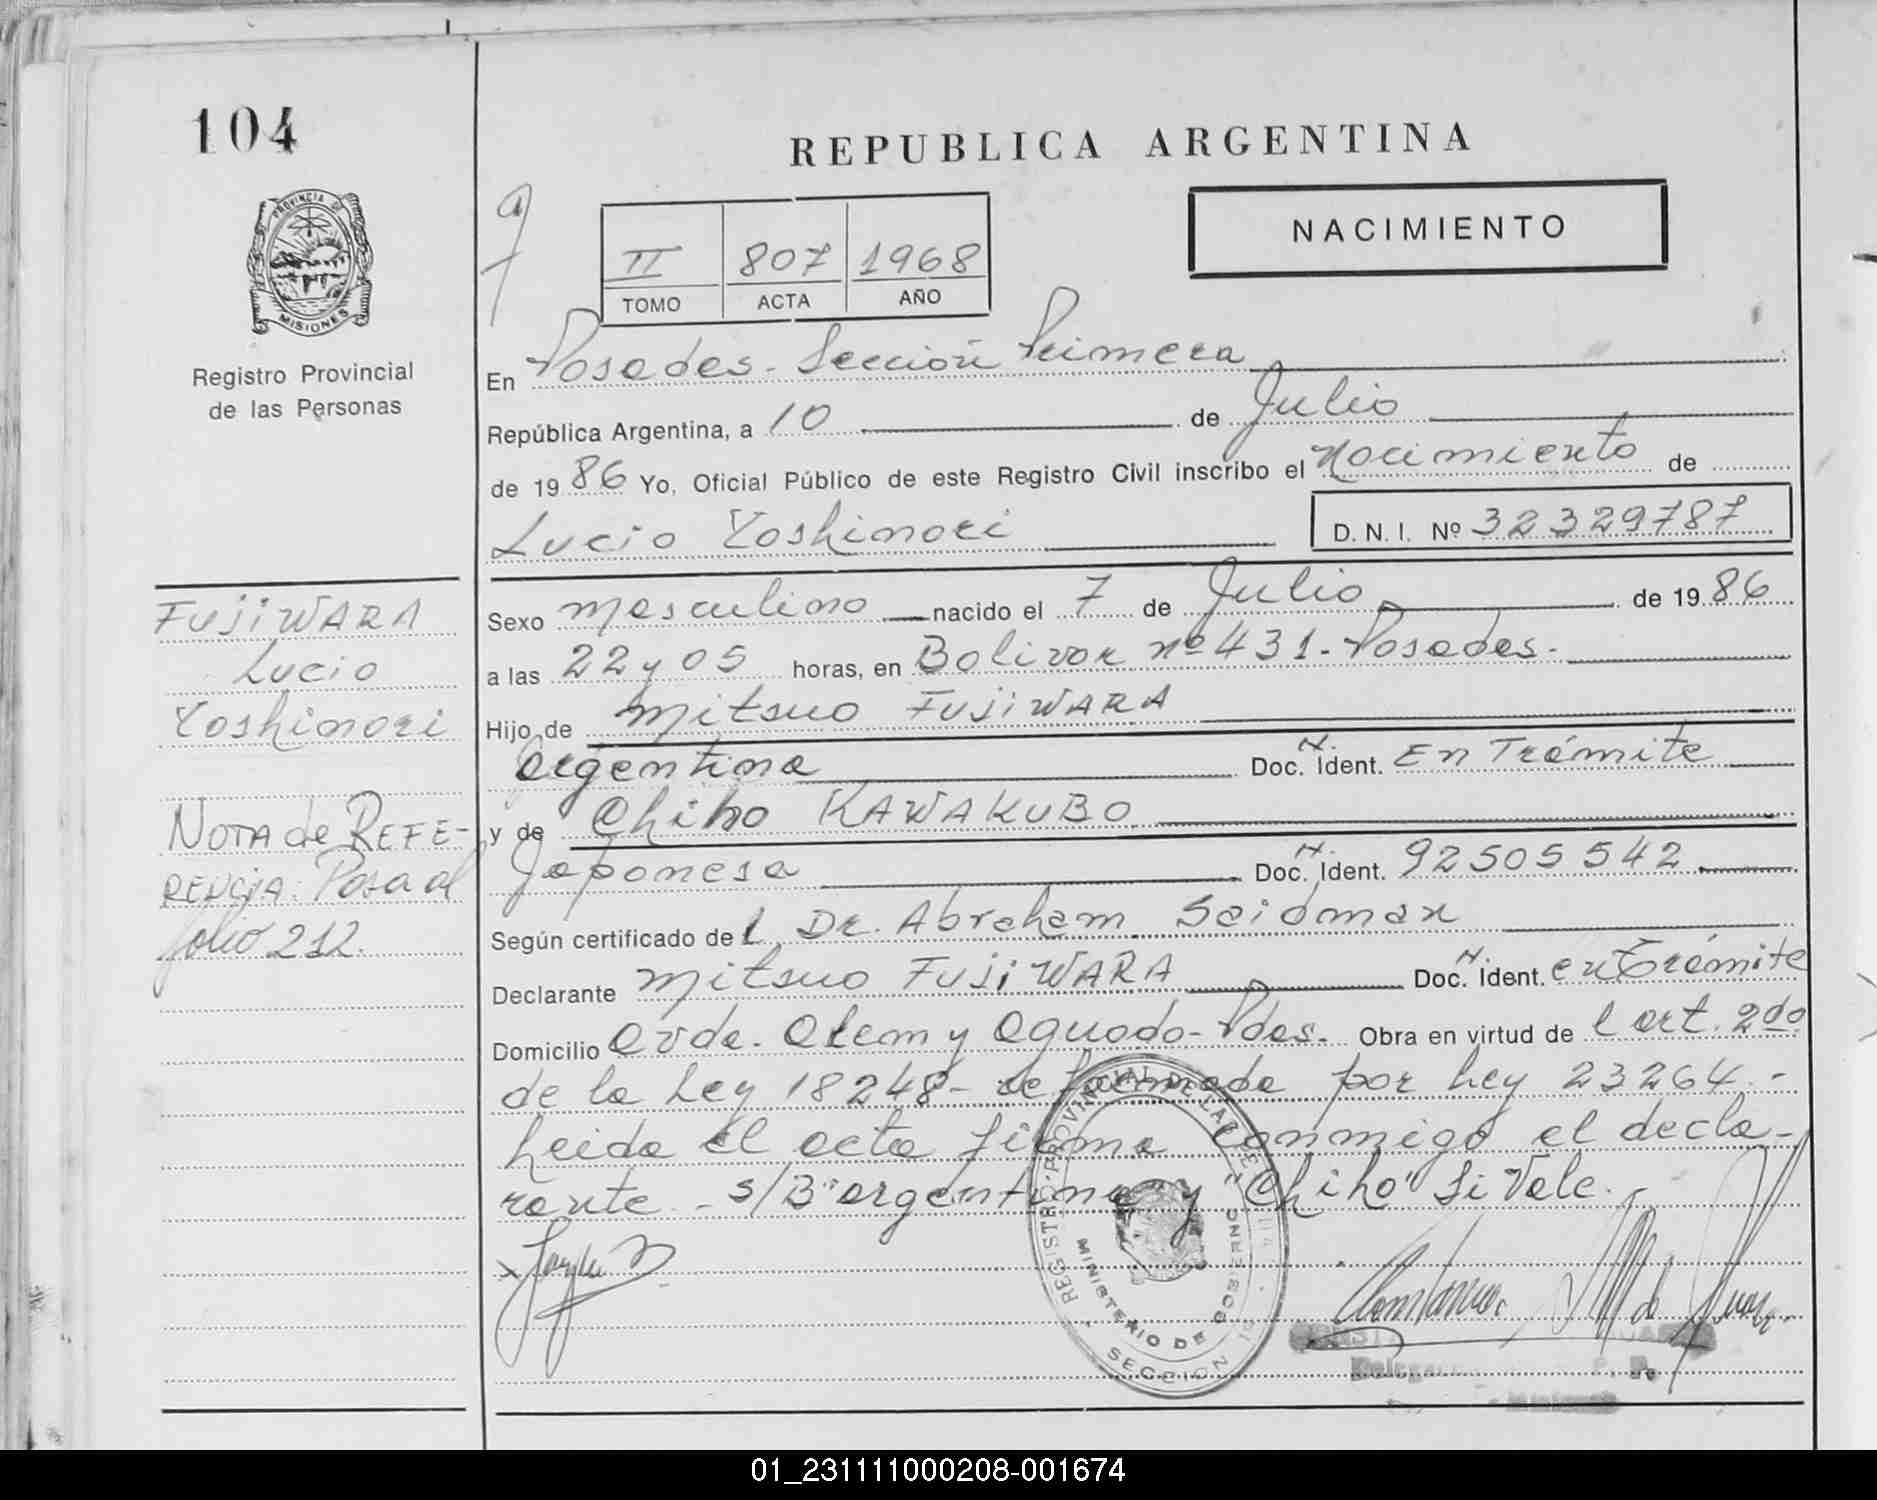 104
REPUBLICA ARGENTINA
PROVINCIA DE
MISIONES
Registro Provincial
de las Personas
II 807 1968
TOMO ACTA AÑO
NACIMIENTO
En Posadas - Sección Primera
República Argentina, a 10 de Julio
de 1986 Yo, Oficial Público de este Registro Civil inscribo el Nacimiento de
Lucio Yoshinori D. N. I. Nº 32329787
FUJIWARA
Lucio
Yoshinori
NOTA de REFE-
RENCIA: Pasa al
folio 212.
Sexo masculino nacido el 7 de Julio de 1986
a las 22 y 05 horas, en Bolivar nº 431 - Posadas.
Hijo de Mitsuo FUJIWARA
argentina Doc. N. Ident. En Trámite
y de Chiho KAWAKUBO
Japonesa Doc. N. Ident. 92505542
Según certificado del Dr. Abraham Seidman
Declarante Mitsuo FUJIWARA Doc. N. Ident. en Trámite
Domicilio Avda. Alem y Aguado - Pdas. Obra en virtud del art. 2do
de la Ley 18248 - reformada por Ley 23264. -
Leida el acta firma conmigo el decla-
rante. - S/B "argentina" y "Chiho" Si Vale.
REGISTRO PROVINCIAL DE LAS PERSONAS
MINISTERIO DE GOBIERNO
SECCION 1a
01_231111000208-001674